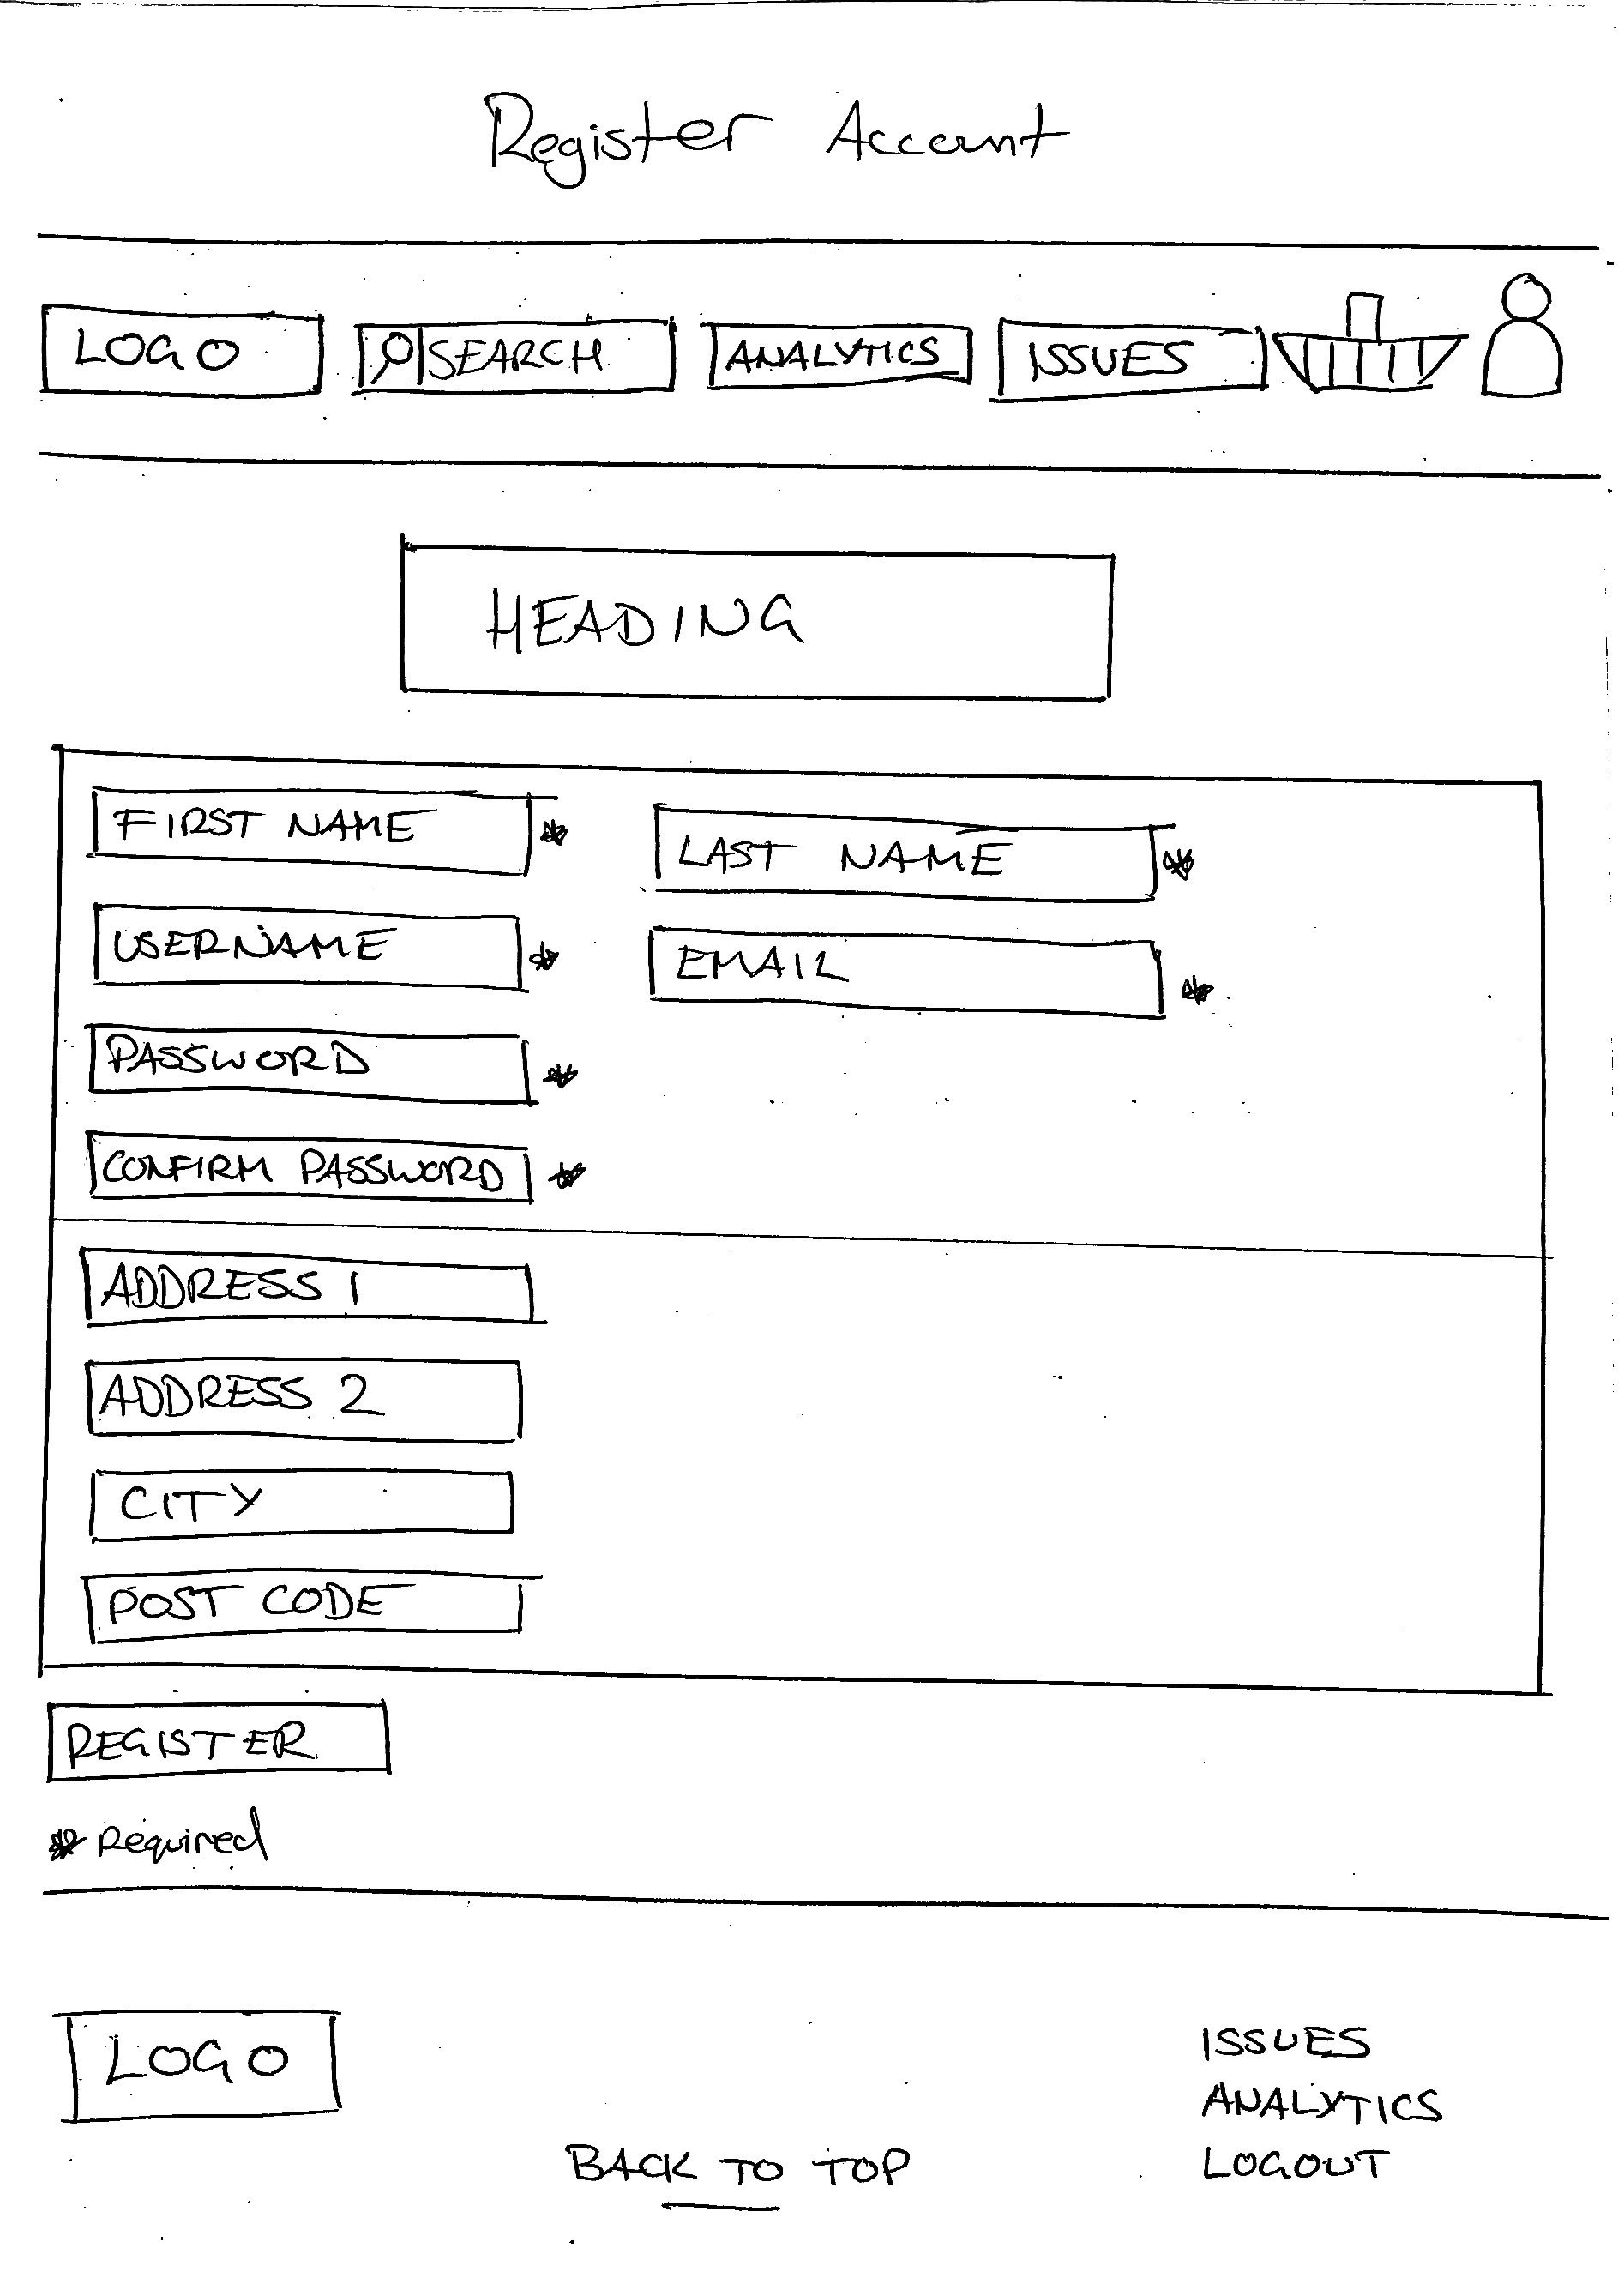 Register Account
LOGO SEARCH ANALYTICS ISSUES
HEADING
FIRST NAME * LAST NAME *
USERNAME * EMAIL *
PASSWORD *
CONFIRM PASSWORD *
ADDRESS 1
ADDRESS 2
CITY
POST CODE
REGISTER
* Required
LOGO
ISSUES
ANALYTICS
BACK TO TOP
LOGOUT